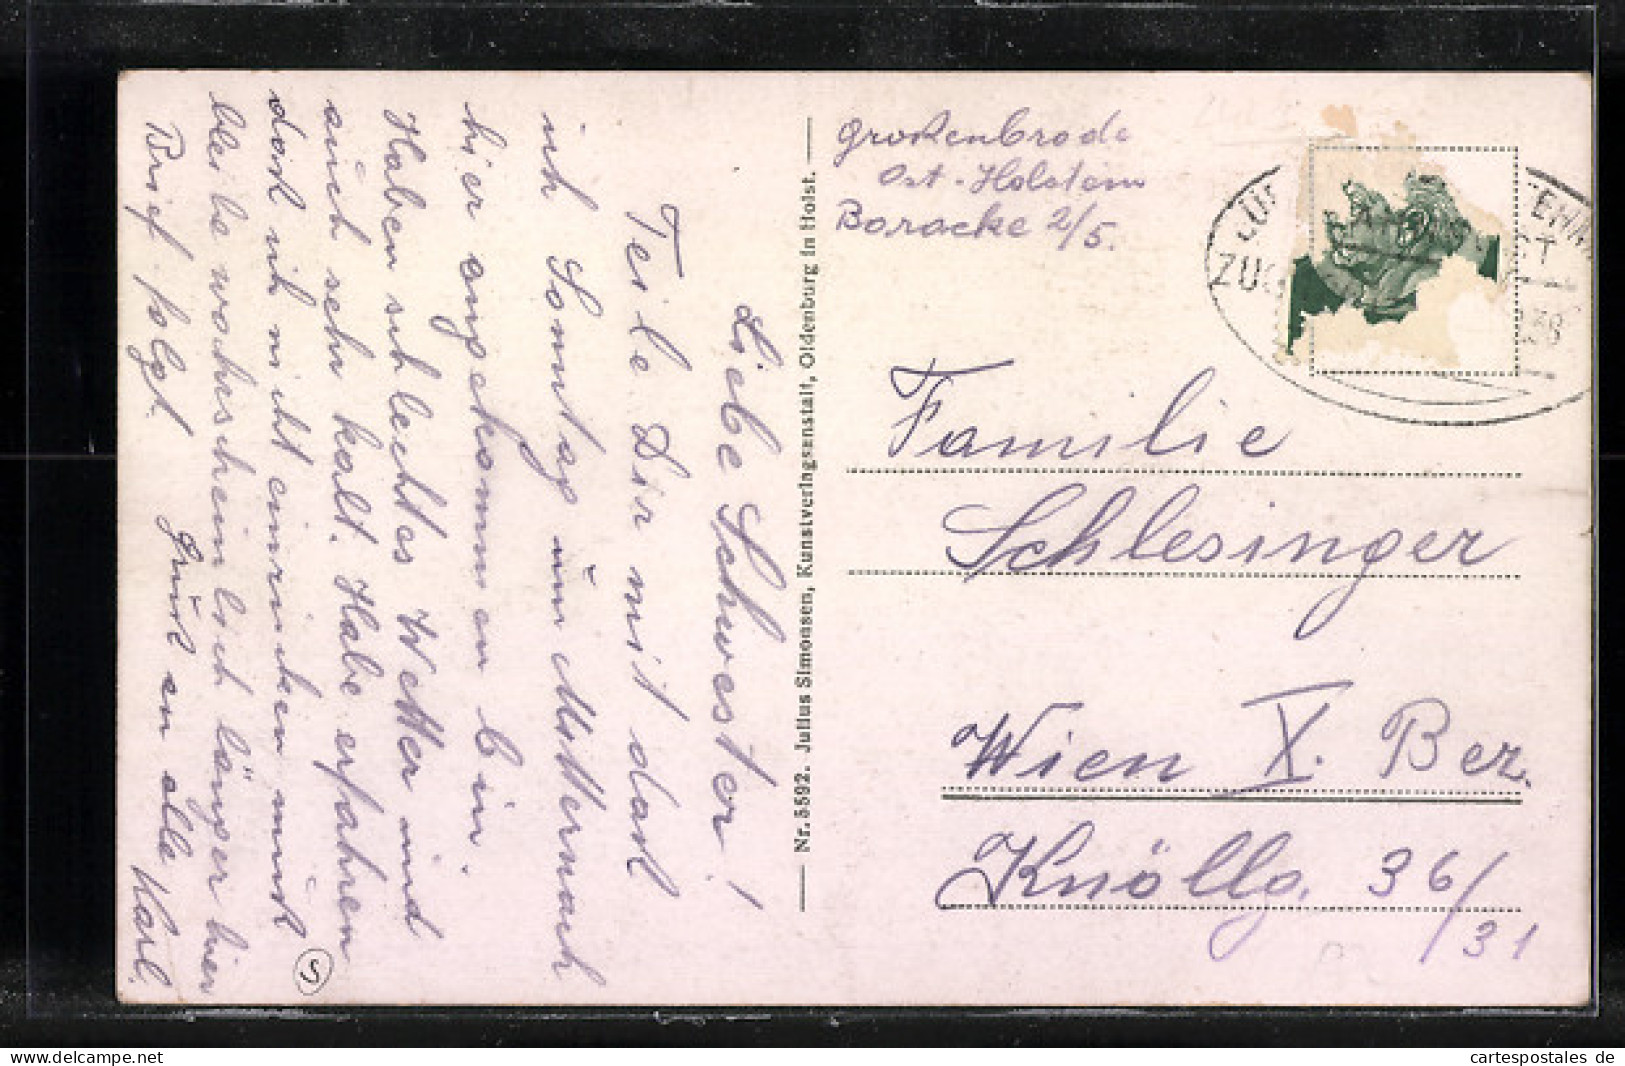 Großenbrode
Ost-Holstein
Baracke 2/5.
ZUG
38
Familie
Schlesinger
Wien X. Bez.
Knöllg. 36/
31
Nr. 5592. Julius Simonsen, Kunstverlagsanstalt, Oldenburg in Holst.
Liebe Schwester!
Teile Dir mit daß
ich Sonntag um Mitternach
hier angekommen bin.
Haben schlechtes Wetter und
auch sehr kalt. Habe erfahren
daß ich nicht einrücken muß
bleibe warscheinlich länger hier
Brief folgt. Gruß an alle Karl.
S
cartespostales.de